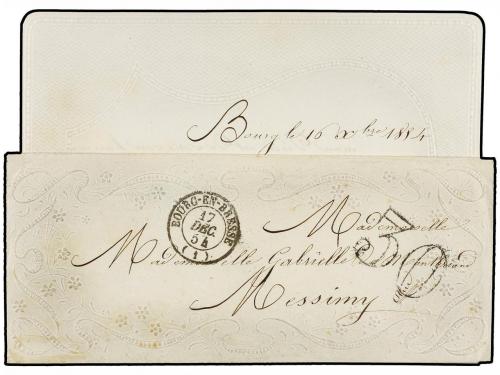 Bourg le 16 Xbre 1854
BOURG-EN-BRESSE
17
DEC.
54
(1)
Mademoiselle
Mademoiselle Gabrielle
Messimy